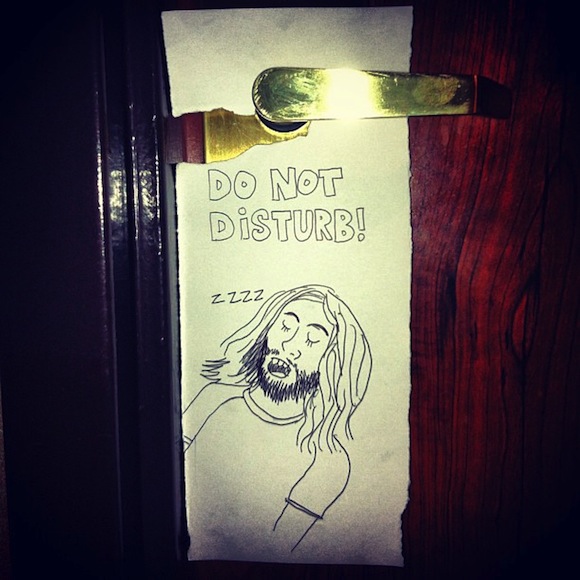 DO NOT
DiSTURB!
ZZZZ